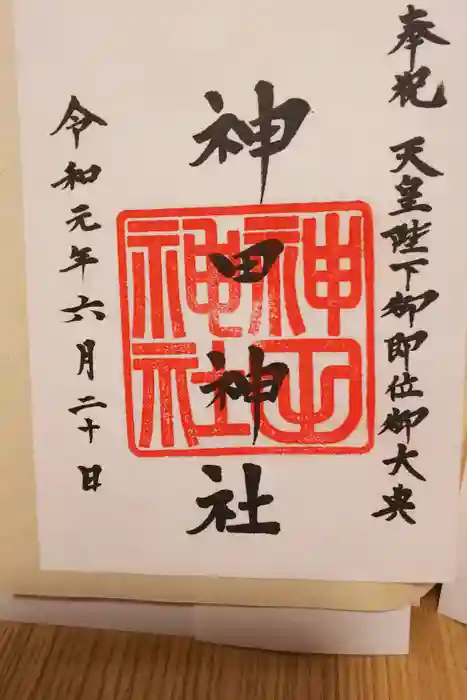 奉祝 天皇陛下御即位御大典
神田神社
神田
神社
令和元年六月二十日